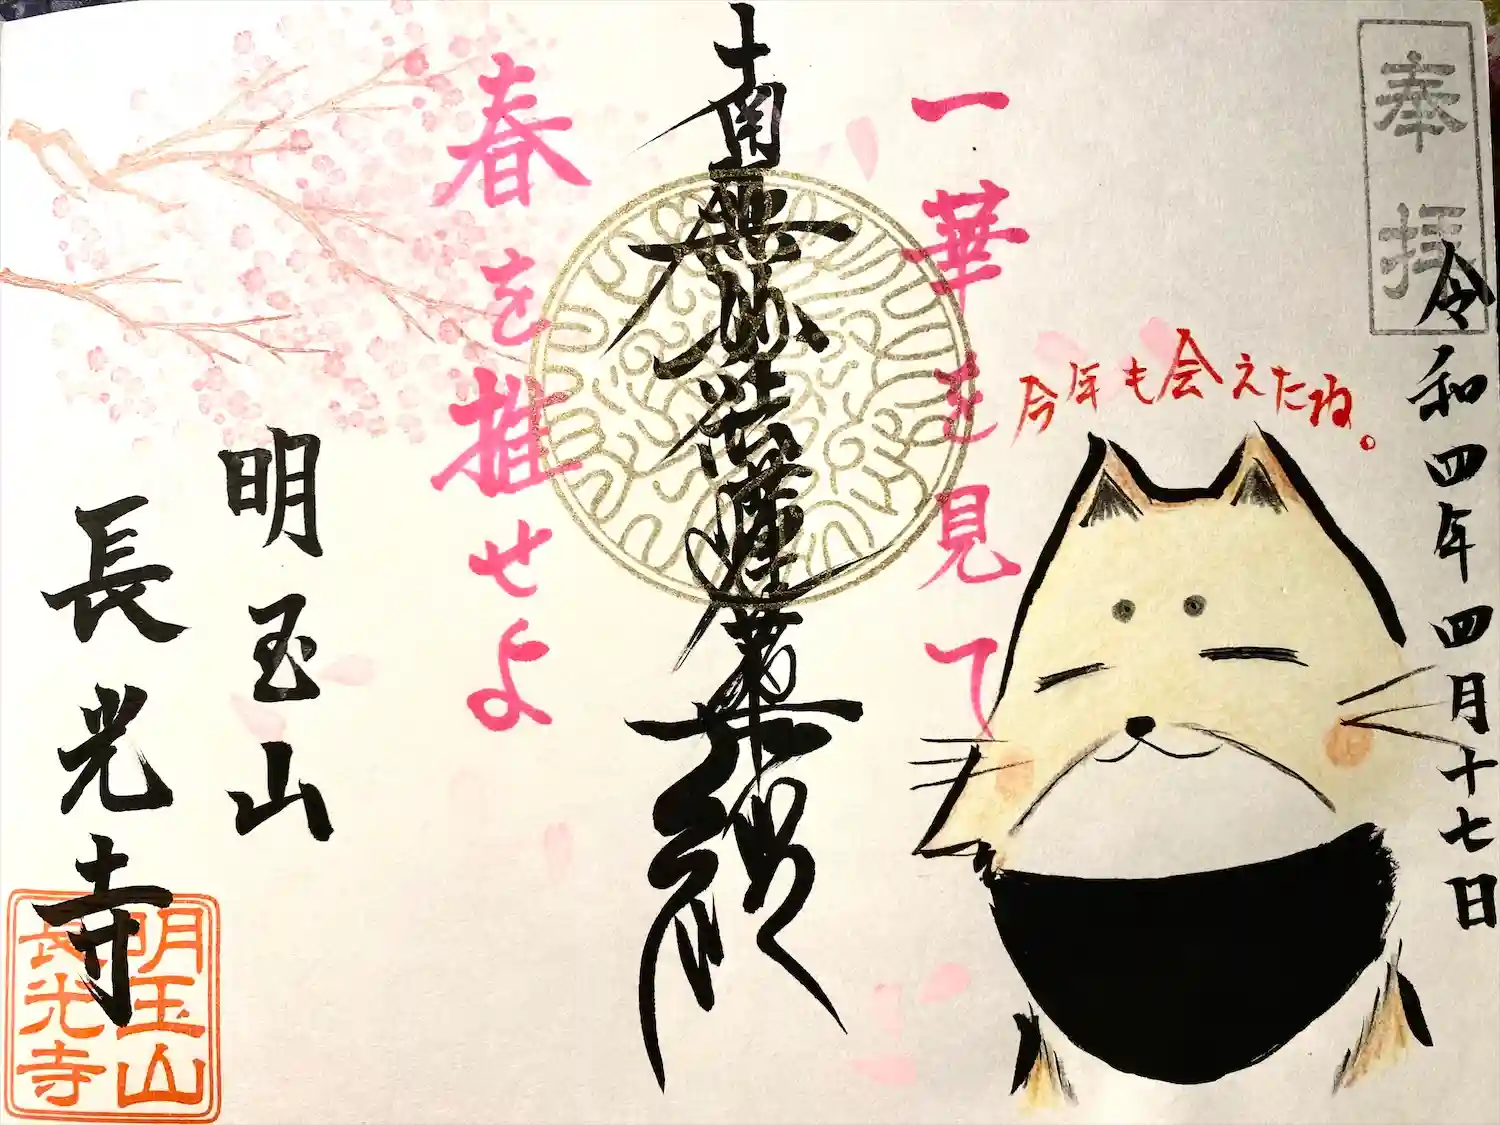 奉拝
令和四年四月十七日
今年も会えたね。
一華を見て
南無妙法蓮華経
春を推せよ
明玉山
長光寺
明玉山
長光寺